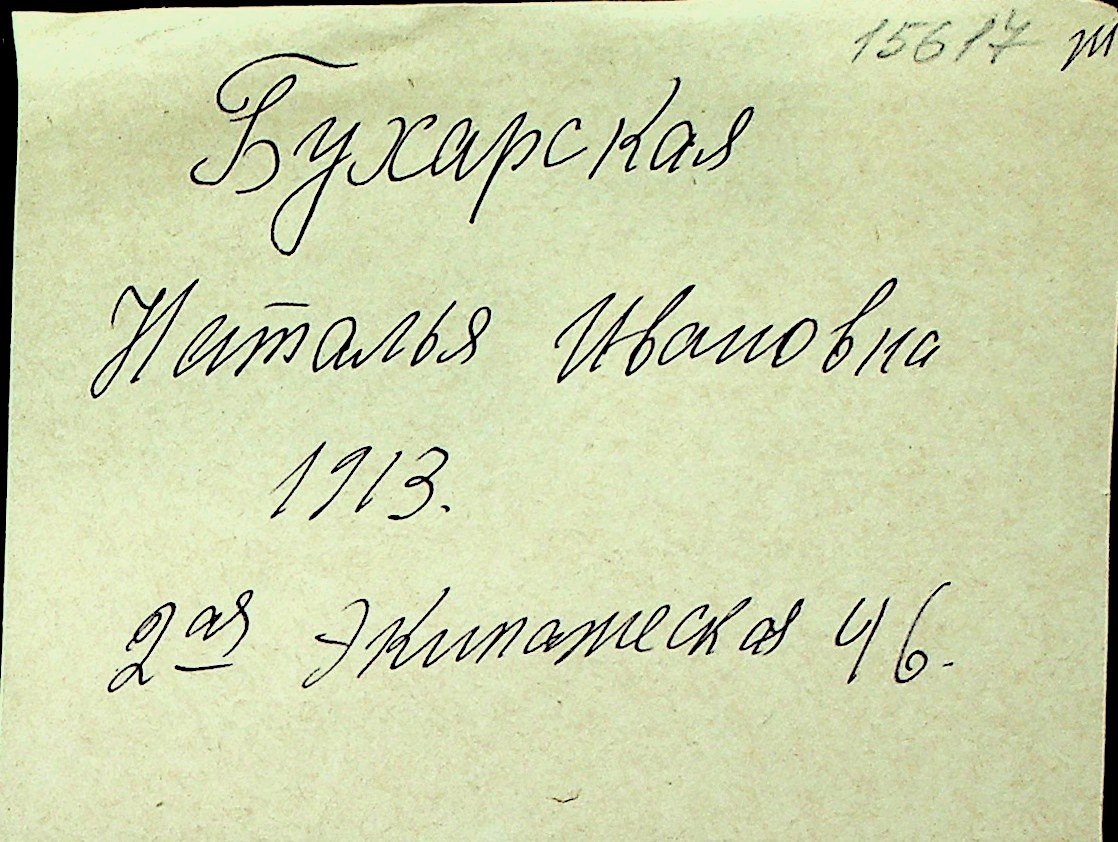 15617 ж
Бухарская
Наталья Ивановна
1913.
2ая Экипажеская 46.